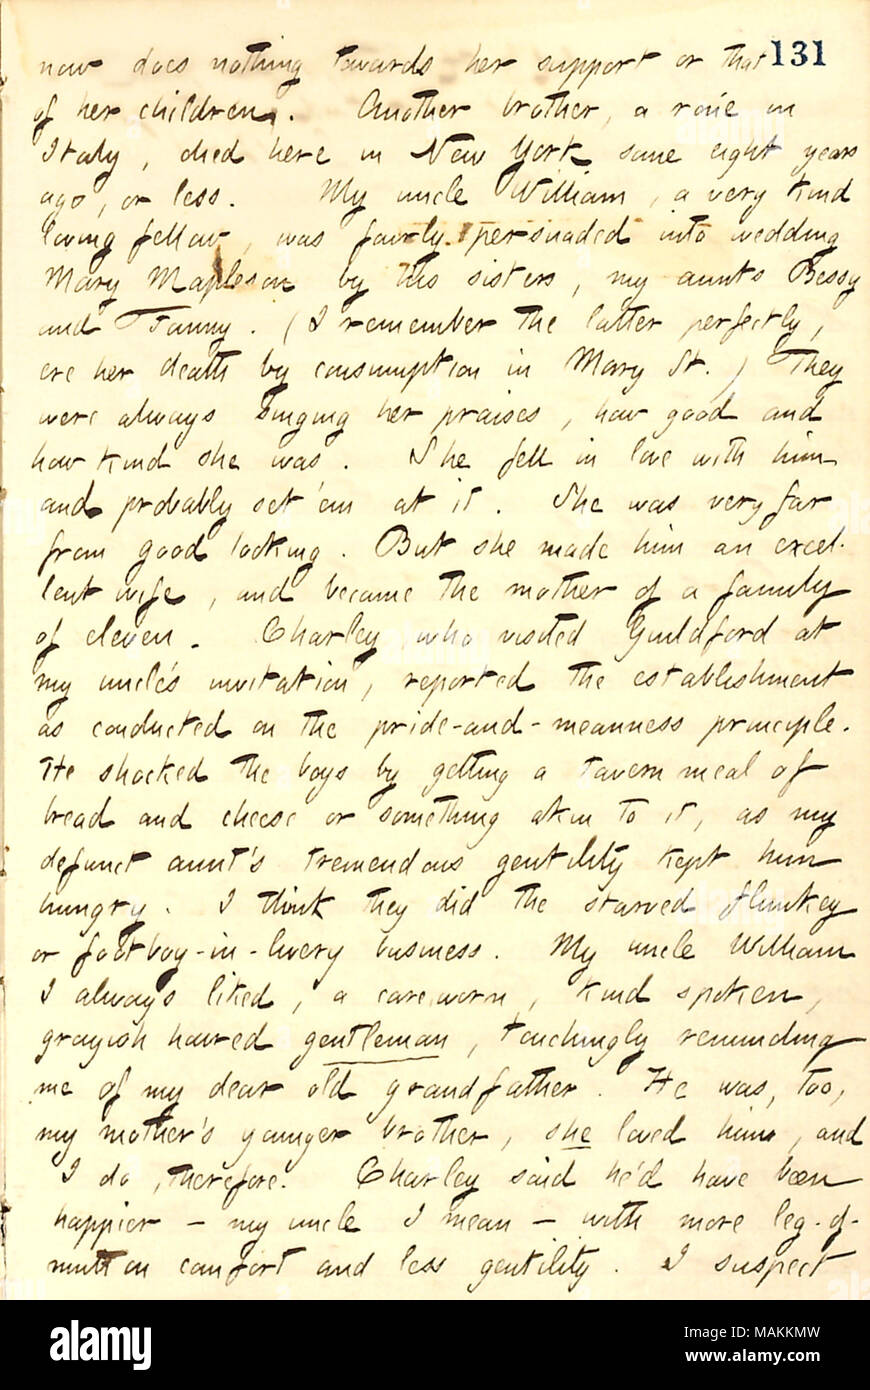 131
now does nothing towards her support or that
of her children. Another brother, a roué in
Italy, died here in New York some eight years
ago, or less. My uncle William, a very kind
loving fellow, was fairly persuaded into wedding
Mary Mapleson by his sisters, my aunts Bessy
and Fanny. (I remember the latter perfectly,
ere her death by consumption in Mary St.) They
were always singing her praises, how good and
how kind she was. She fell in love with him
and probably set 'em at it. She was very far
from good looking. But she made him an excel-
lent wife, and became the mother of a family
of eleven. Charley, who visited Guildford at
my uncle's invitation, reported the establishment
as conducted on the pride-and-meanness principle.
He shocked the boys by getting a tavern meal of
bread and cheese or something akin to it, as my
defunct aunt's tremendous gentility kept him
hungry. I think they did the starved flunkey
or footboy-in-livery business. My uncle William
I always liked, a careworn, kind spoken,
grayish haired gentleman, touchingly reminding
me of my dear old grandfather. He was, too,
my mother's younger brother, she loved him, and
I do, therefore. Charley said he'd have been
happier — my uncle I mean — with more leg-of-
mutton comfort and less gentility. I suspect
alamy
Image ID: MAKKMW
www.alamy.com